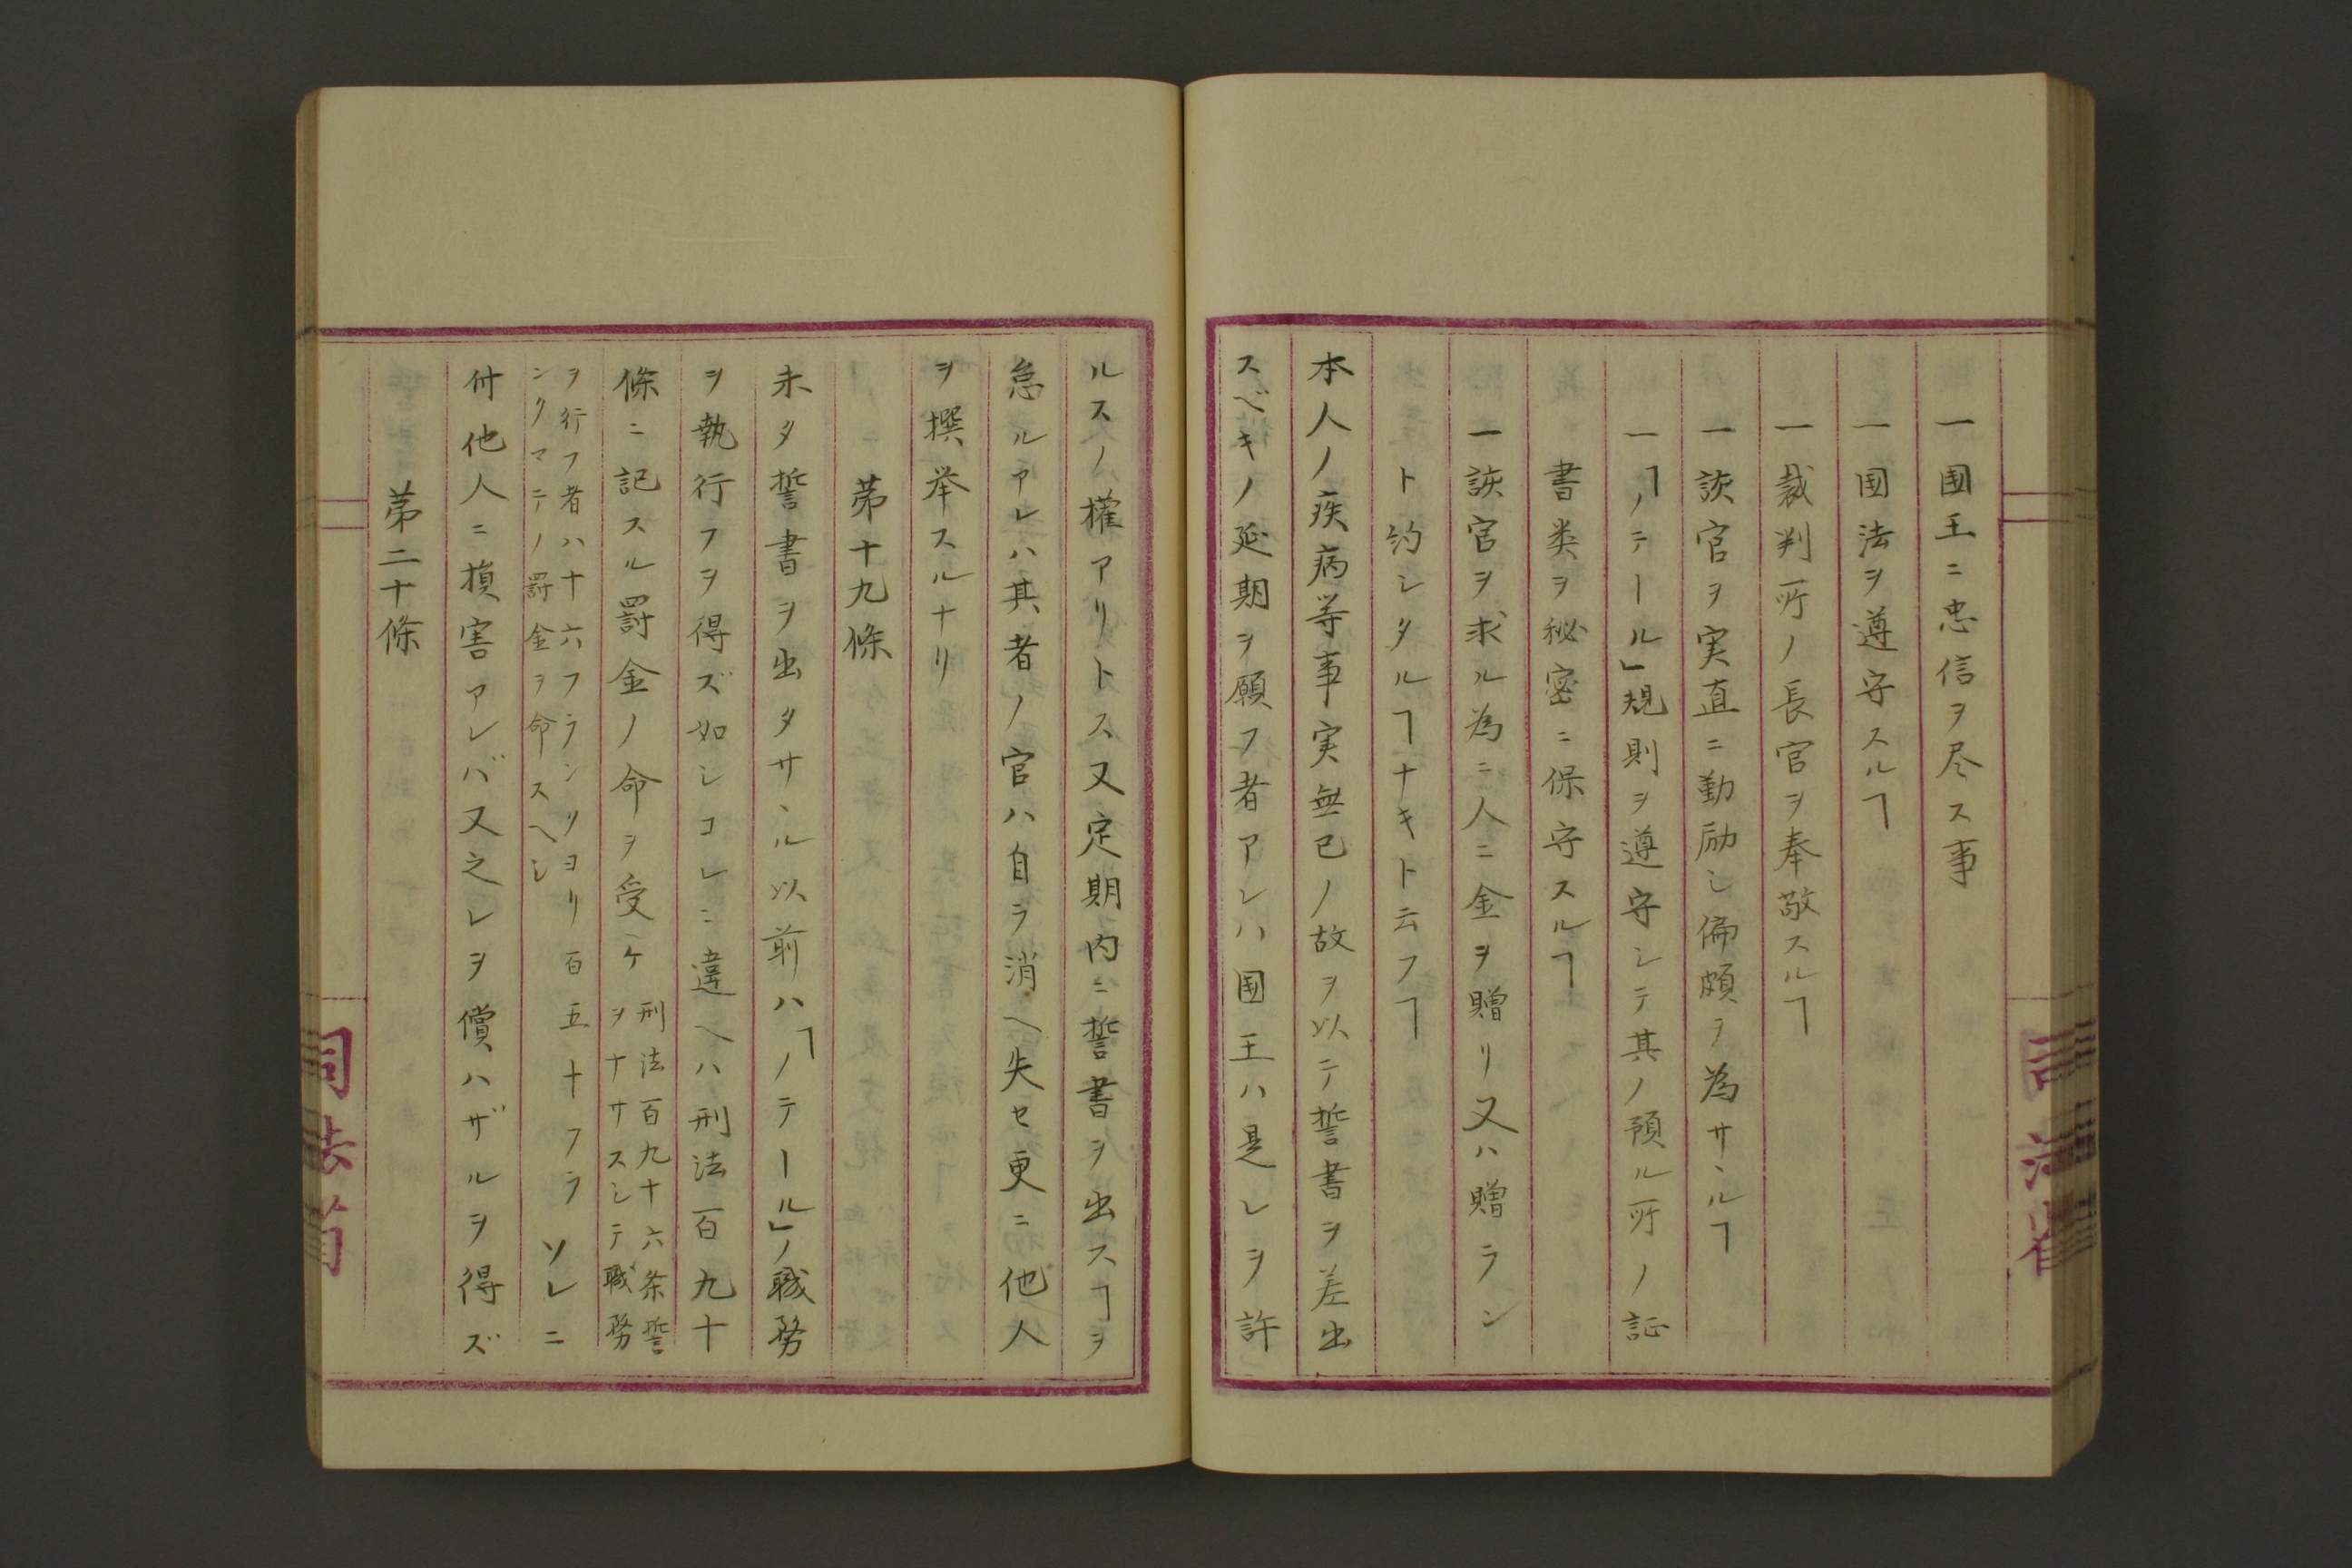 一国王ニ忠信ヲ尽ス事
一国法ヲ遵守スルヿ
一裁判所ノ長官ヲ奉敬スルヿ
一該官ヲ実直ニ勤励シ偏頗ヲ為サヽルヿ
一「ノテール」規則ヲ遵守シテ其ノ預ル所ノ証
書类ヲ秘密ニ保守スルヿ
一該官ヲ求ル為ニ人ニ金ヲ贈リ又ハ贈ラン
ト約シタルヿナキト云フヿ
本人ノ疾病等事実無已ノ故ヲ以テ誓書ヲ差出
スベキノ延期ヲ願フ者アレハ国王ハ是レヲ許
ルスノ權アリトス又定期内ニ誓書ヲ出スヿヲ
怠ルアレハ其者ノ官ハ自ラ消ヘ失セ更ニ他人
ヲ撰挙スルナリ
第十九條
未タ誓書ヲ出タサヽル以前ハ「ノテール」ノ職務
ヲ執行フヲ得ズ如シコレニ違ヘハ刑法百九十
條ニ記スル罰金ノ命ヲ受ケ
刑法百九十六条誓
ヲナサスシテ職務
ヲ行フ者ハ十六フランクヨリ百五十フラ
ンクマテノ罰金ヲ命スヘシ
ソレニ
付他人ニ損害アレバ又之レヲ償ハザルヲ得ズ
第二十條
司法省